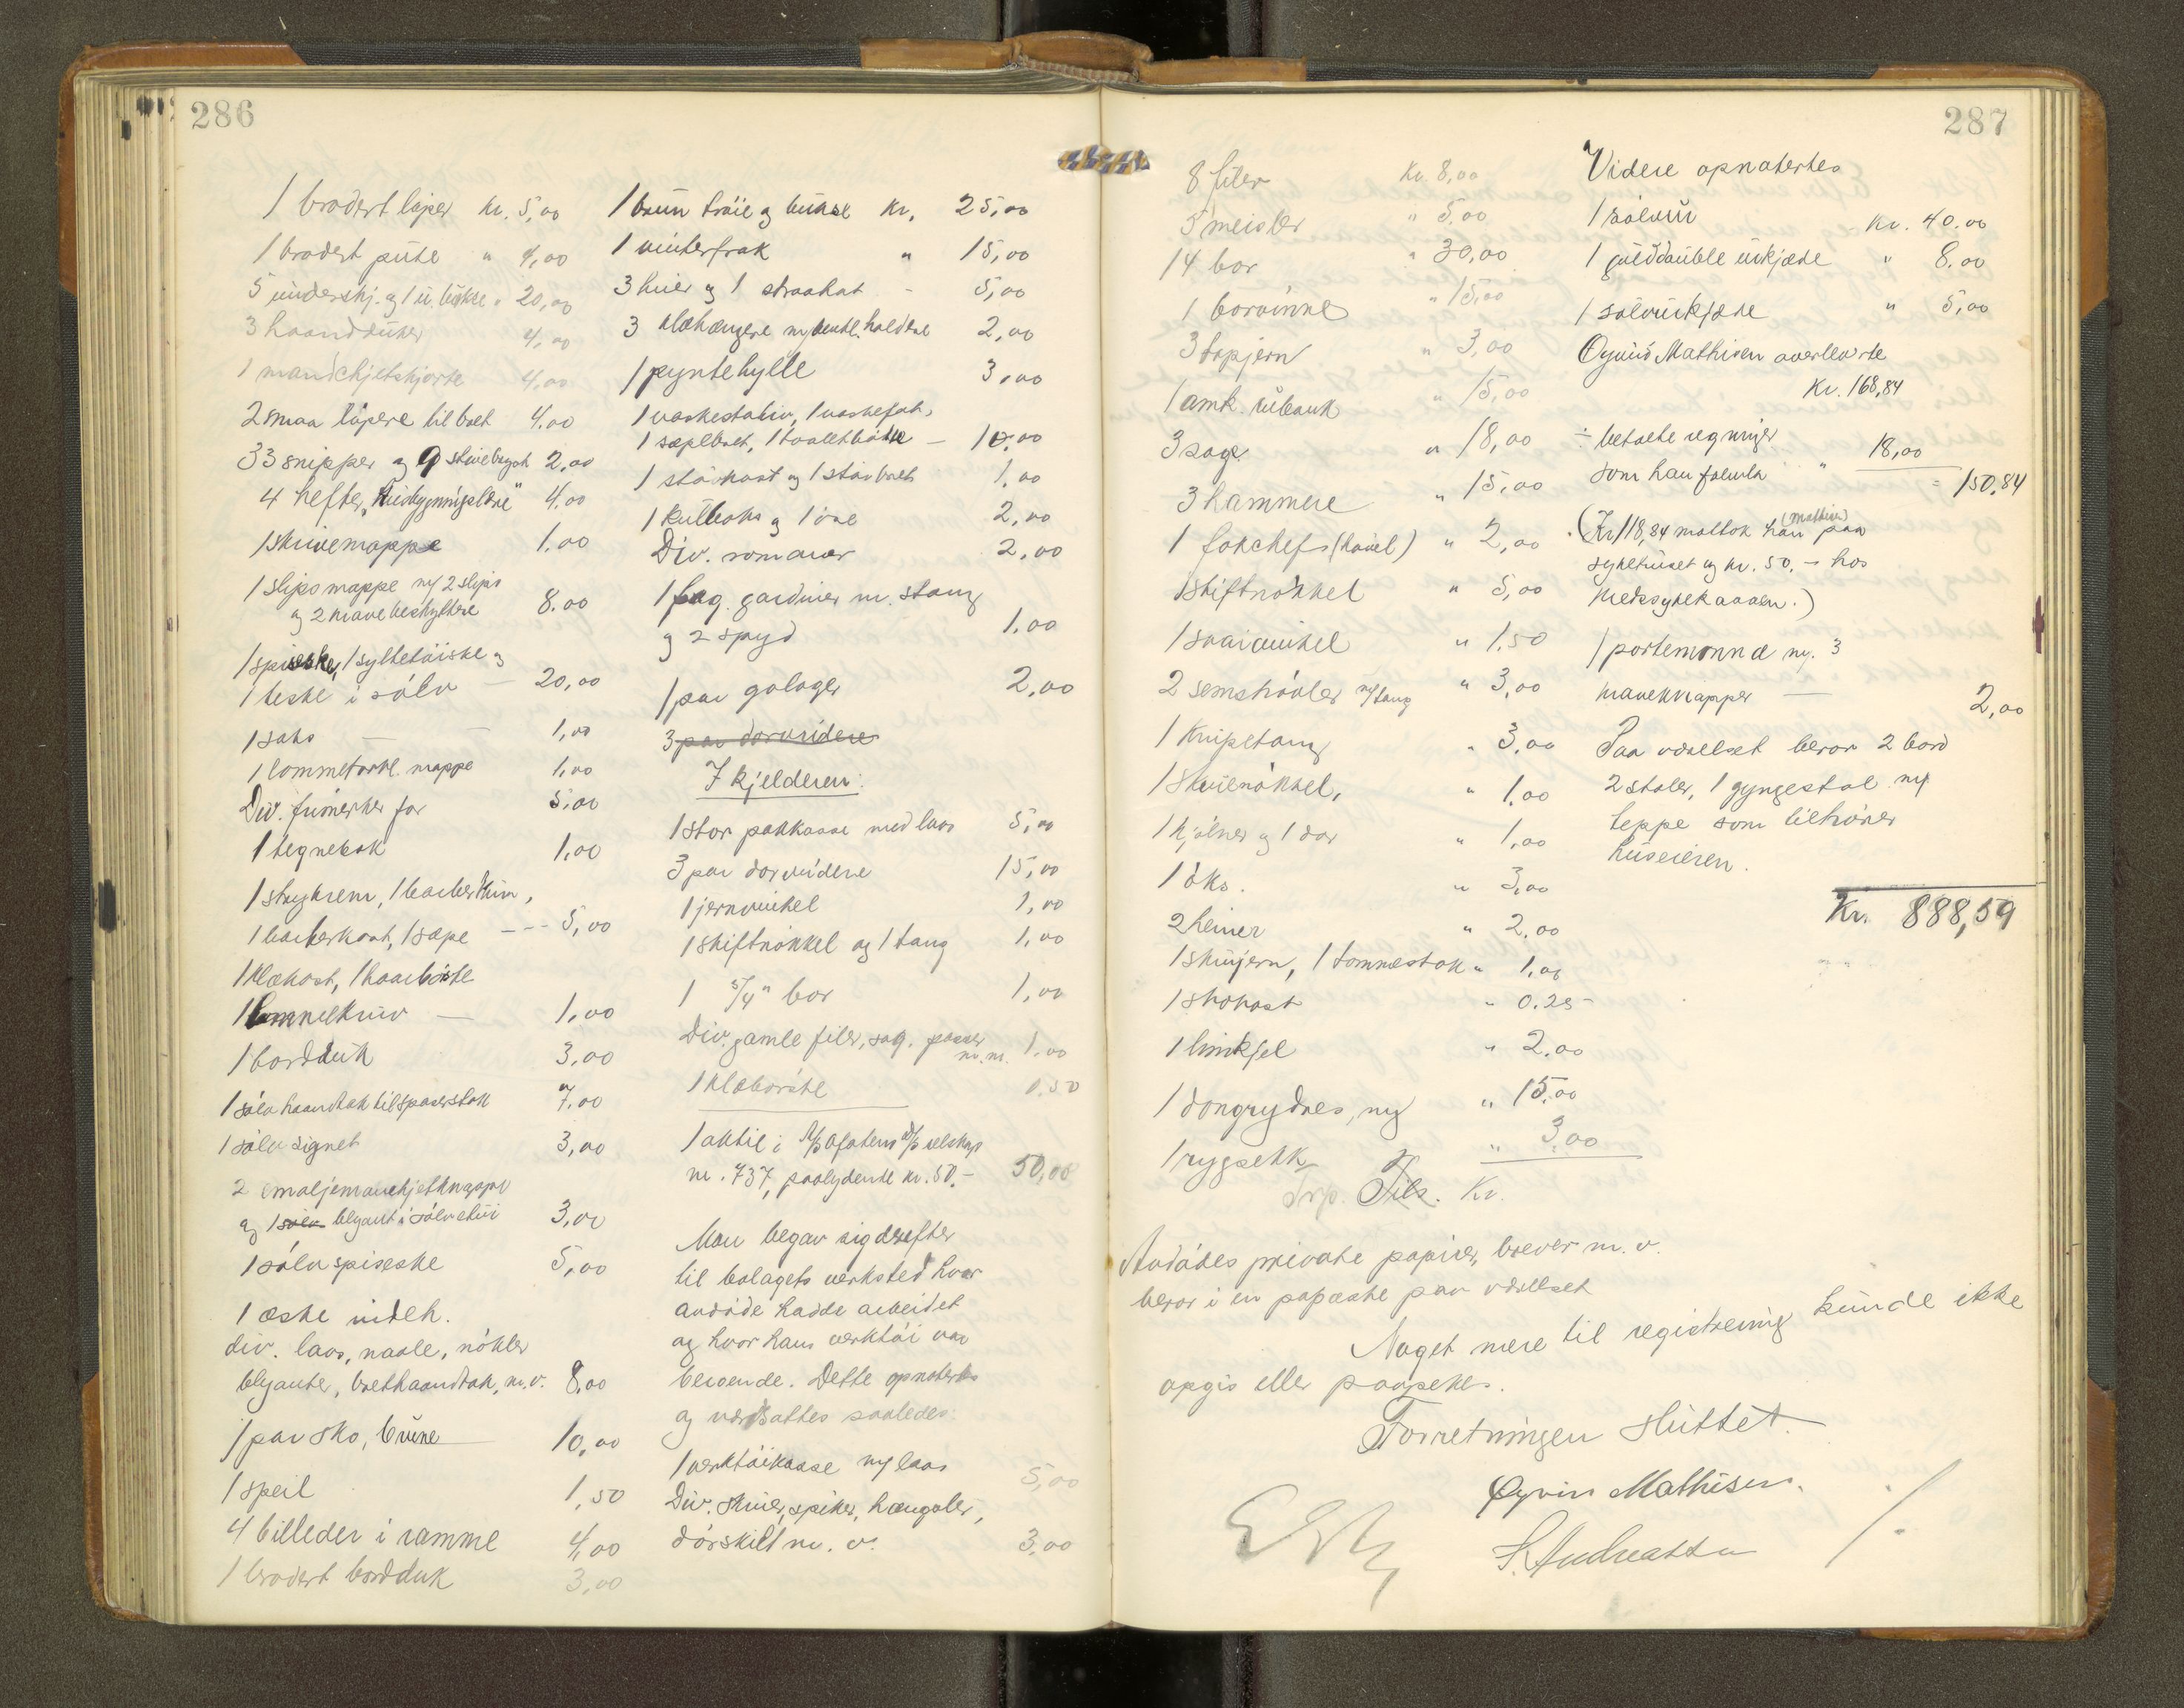 286
1 brodert løper kr. 5,00
1 brodert pute " 4,00
5 underskj. og 1 u. bukse " 20,00
3 haandduker 4,00
1 mandchjetskjorte 4,00
2 smaa løpere til bret 4.00
33 snipper og 9 2,00
4 hefter, "Husbygningslære" 4,00
1 skrivemappe 1,00
1 slipsmappe m/ 2 slips
og 2 mavebeskyttere 8.00
1 spiseske, 1 syltetøiske og
1 teske i sølv — 20,00
1 saks — — 1,00
1 lommetørkl. mappe 1,00
Div. frimerker for 5,00
1 tegnebok 1,00
1 strykrem, 1 barberkniv,
1 barberkost, 1 sæpe --- 5,00
1 klækost, 1 haarbørste
1 lommekniv — 1,00
1 bordduk 3,00
1 sølv haandtak til spaserstok 7,00
1 sølv signet 3,00
2 emaljemanchjetknapper
og 1 sølv blyant i sølvetui 3,00
1 sølv spiseske 5,00
1 æske indeh.
div. laas, naale, nøkler
blyanter, brethaandtak, m.v. 8,00
1 par sko, brune 10,00
1 speil 1,50
4 billeder i ramme 4,00
1 brodert bordduk 3,00
1 brun trøie og bukse kr. 25,00
1 vinterfrak " 15,00
3 huer og 1 straahat - 5,00
3 klæhængere m/ bukseholdere 2,00
1 pyntehylle 3,00
1 vaskestativ, 1 vaskefat,
1 sæpebret, 1 toaletbøtte — 10,00
1 støvkost og 1 støvbret 1,00
1 kulboks og 1 øse 2,00
Div. romaner 2,00
1 fag. gardiner m. stang
og 2 spyd 1,00
1 par galoger 2,00
3 par dorvridere
I kjelderen:
1 stor pakkasse med laas 5,00
3 par dorvridere 15,00
1 jernvinkel 1,00
1 skiftnøkkel og 1 tang 1,00
1 5/4" bor 1,00
Div. gamle filer, sag. passer
m.m. 1,00
1 klæbørste 0,50
1 aktie i A/S Ofotens D/S selskap
nr. 737, paalydende kr. 50.- 50,00
Man begav sig derefter
til bolagets verksted hvor
avdøde hadde arbeidet
og hvor hans verktøi var
beroende. Dette opnotertes
og værdsattes saaledes:
1 verktøikasse m/ laas 5,00
Div. skruer, spiker, hængsler,
dørskilt m. v. 3.00
287
8 filer kr. 8,00
5 meisler " 5,00
14 bor " 30,00
1 borvinne " 15,00
3 tapjern " 3,00
1 amk. rubank " 15,00
3 sage " 18,00
3 hammere " 15,00
1 (høvel) " 2,00
1 skiftnøkkel " 5,00
1 svaivinkel " 1,50
2 semshøvler m/ tang " 3,00
1 knipetang " 3,00
1 skruenøkkel, " 1,00
1 kjølner og 1 dor " 1,00
1 øks. " 3,00
2 heiner " 2,00
1 skrujern, 1 tommestok " 1,00
1 skokost " 0.25
1 limkjel " 2,00
1 dongrydres, ny " 15,00
1 rygsekk " 3,00
Trp. Tils. Kr.
Videre opnotertes
1 sølvur kr. 40.00
1 gulddouble urkjede " 8.00
1 sølvurkjede " 5,00
Øyvind Mathisen overleverte
Kr. 168,84
÷ betalte regninger
som han foreviste " 18,00 = 150,84
(Kr. 118,84 mottok han (Mathisen) paa
sykehuset og kr. 50.- hos
Kredssykekassen.)
1 portemonnæ m/ 3
mansknapper — 2,00
Paa værelset beror 2 bord
2 stoler, 1 gyngestol m/
teppe som tilhører
huseieren.
Kr. 888,59
Avdødes private papirer, brever m. v.
beror i en papæske paa værelset
Noget mere til registrering kunde ikke
opgis eller paapekes.
Forretningen sluttet.
Øyvin Mathisen.
S. Andreassen